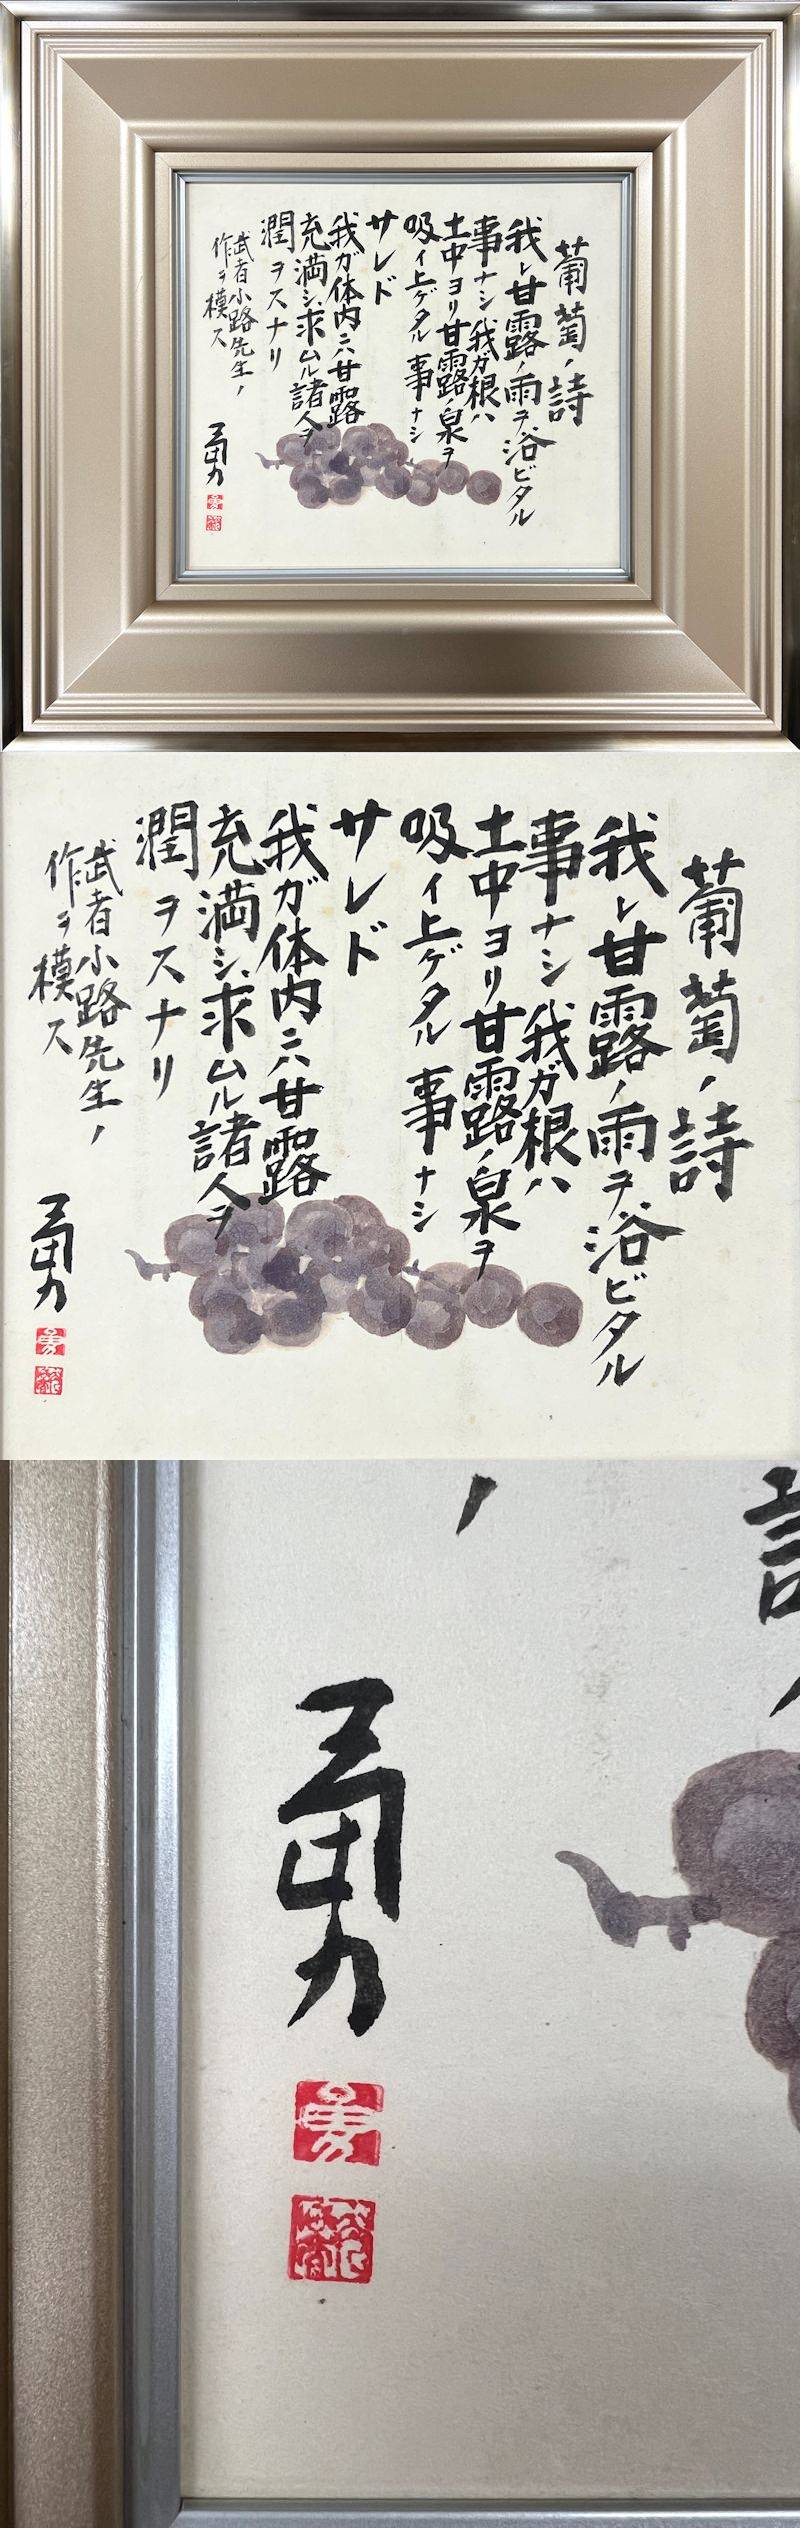 葡萄ノ詩
我レ甘露ノ雨ヲ浴ビタル
事ナシ我ガ根ハ
土中ヨリ甘露ノ泉ヲ
吸イ上ゲタル事ナシ
サレド
我ガ体内ニハ甘露
充満シ、求ムル諸人ヲ
潤ヲスナリ
武者小路先生ノ
作ヲ模ス
勇
勇
葡萄ノ詩
我レ甘露ノ雨ヲ浴ビタル
事ナシ我ガ根ハ
土中ヨリ甘露ノ泉ヲ
吸イ上ゲタル事ナシ
サレド
我ガ体内ニハ甘露
充満シ、求ムル諸人ヲ
潤ヲスナリ
武者小路先生ノ
作ヲ模ス
勇
勇
勇
勇